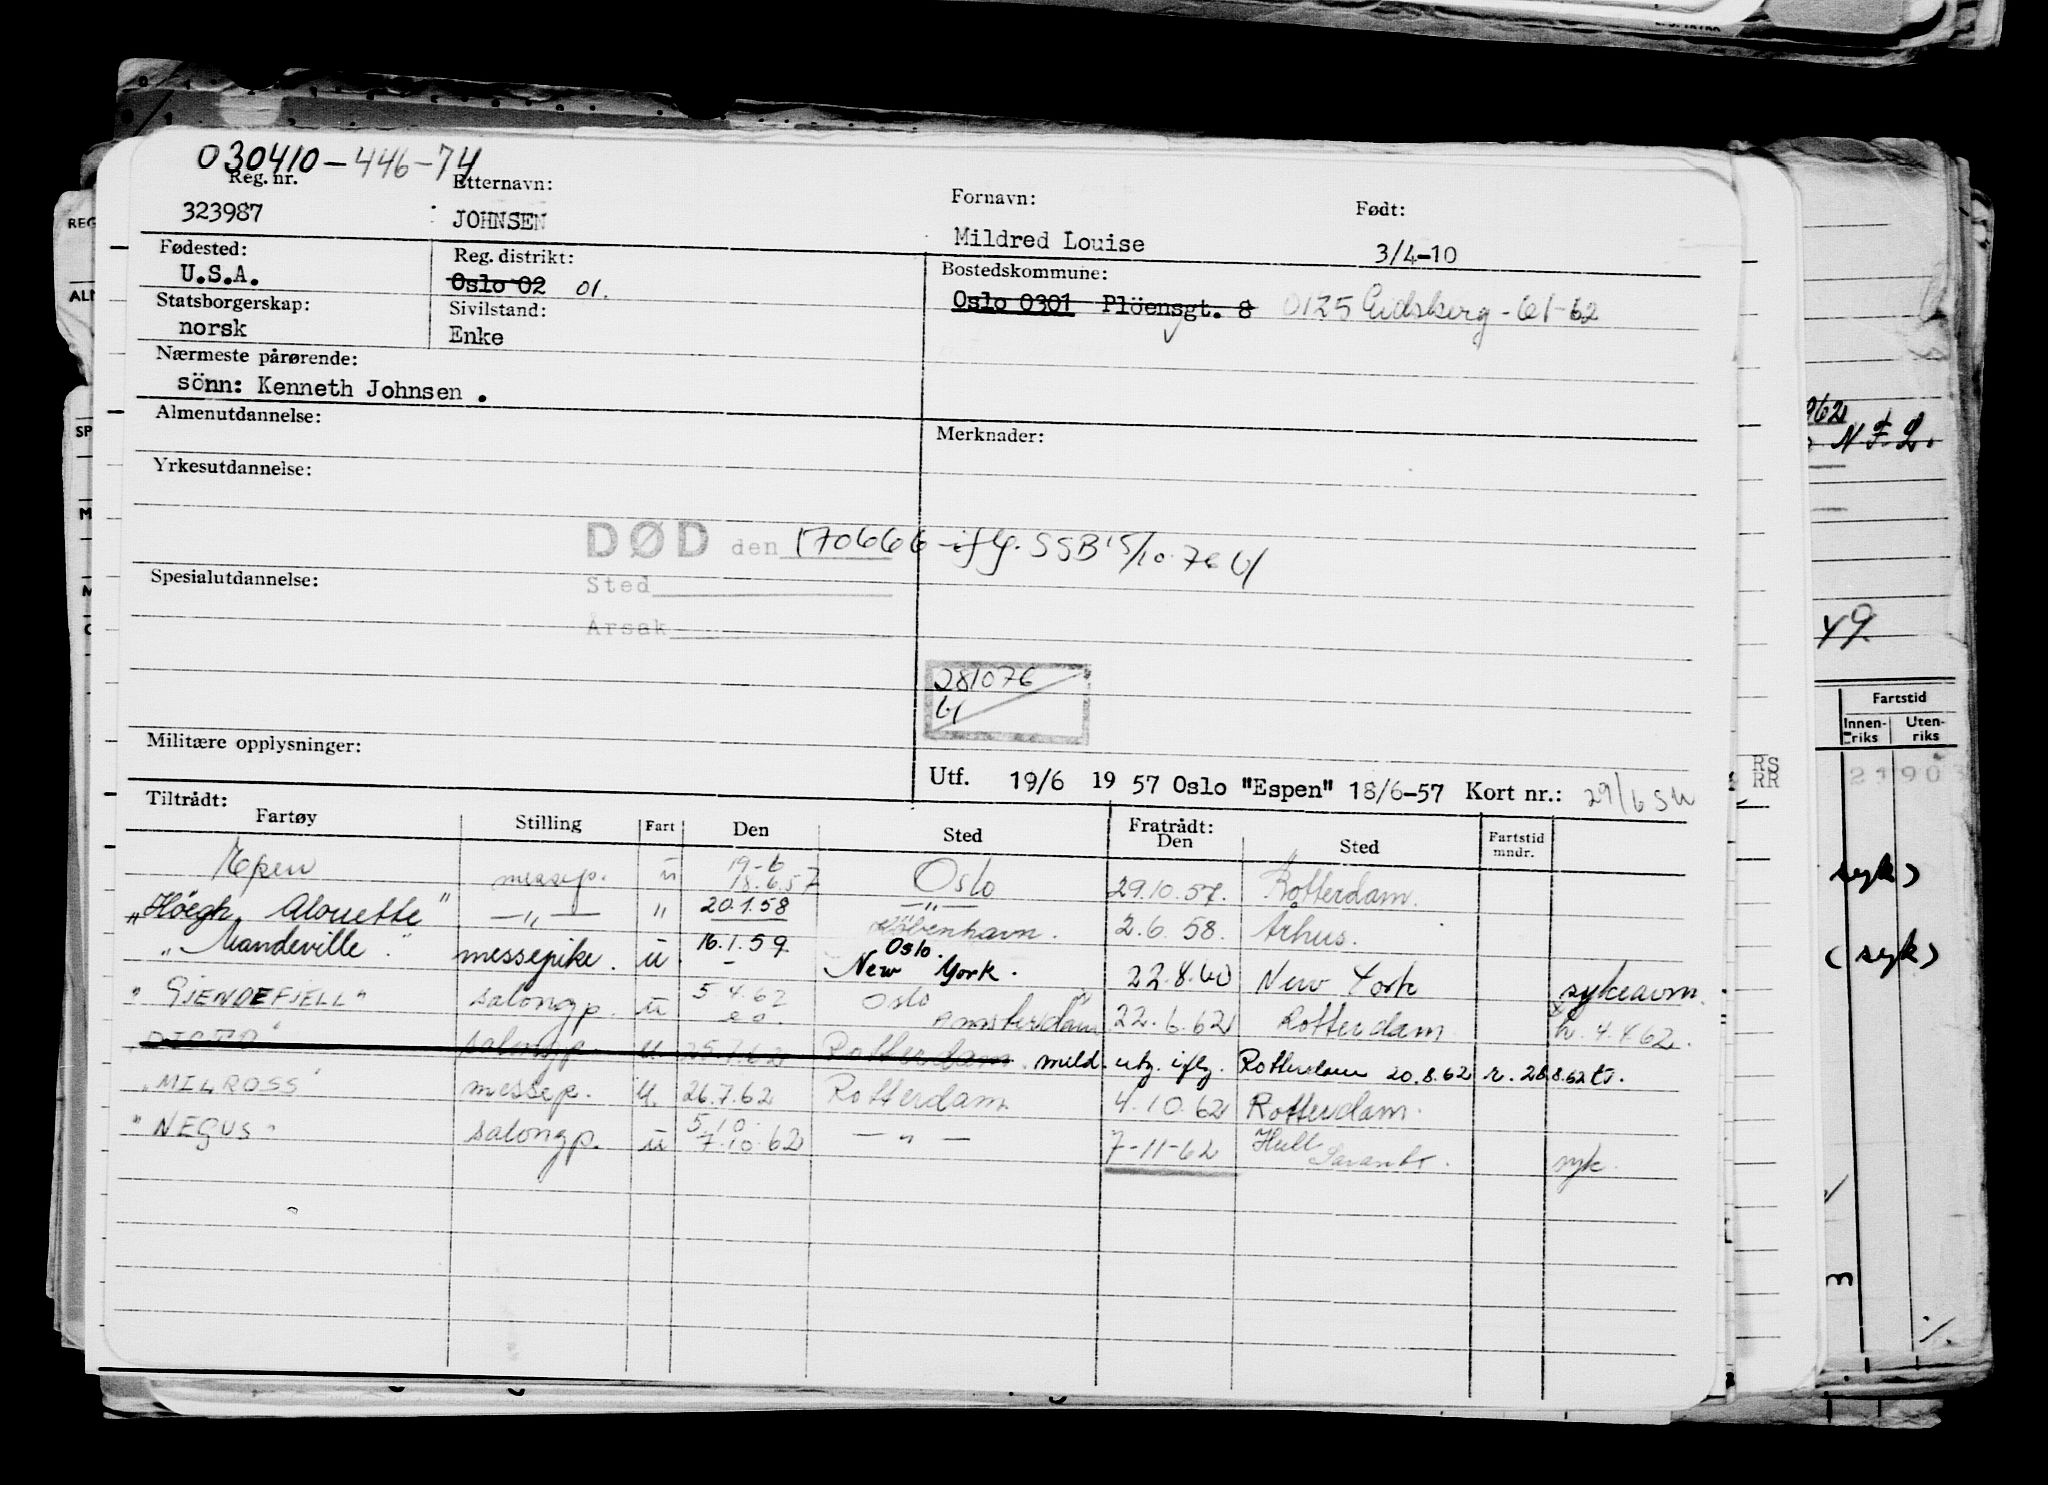 030410-446-74
Reg. nr. Etternavn: Fornavn: Født:
323987 JOHNSEN Mildred Louise 3/4-10
Fødested: Reg. distrikt: Bostedskommune:
U.S.A. Oslo 02 01. Oslo 0301 Plöensgt. 8 0125 Eidsberg - 61-62
Statsborgerskap: Sivilstand:
norsk Enke
Nærmeste pårørende:
sönn: Kenneth Johnsen .
Almenutdannelse: Merknader:
Yrkesutdannelse:
DØD den 170666 iflg. SSB 5/10.76
Spesialutdannelse: Sted
Årsak
281076
Militære opplysninger:
Utf. 19/6 19 57 Oslo "Espen" 18/6-57 Kort nr.: 29/6
Tiltrådt: Fratrådt:
Fartøy Stilling Fart Den Sted Den Sted Fartstid mndr.
Espen messep. u 19-6 18.6.57 Oslo 29.10.57. Rotterdam.
"Höegh Alouette" — " — " 20.1.58 — " — København. 2.6.58. Århus.
"Mandeville" messepike. u. 16.1.59. Oslo. New York. 22.8.60 New York sykeavm.
"GJENDEFJELL" salongp. u 5.4.62 Oslo Amsterdam 22.6.62 Rotterdam h. 4.4.62.
salongp. u. Rotterdam. meld. utg. iflg. Rotterdam 20.8.62 r. 28.8.62
"MILROSS" messep. u. 26.7.62 Rotterdam 4.10.62 Rotterdam.
"NEGUS" salongp. u 5.10. 7.10.62 — " — 7-11-62 Hull syk.
REG
ALM
SP
962
N.F.L.
49.
Fartstid
Innen-riks Uten-riks
RS
RR
syk)
(syk)